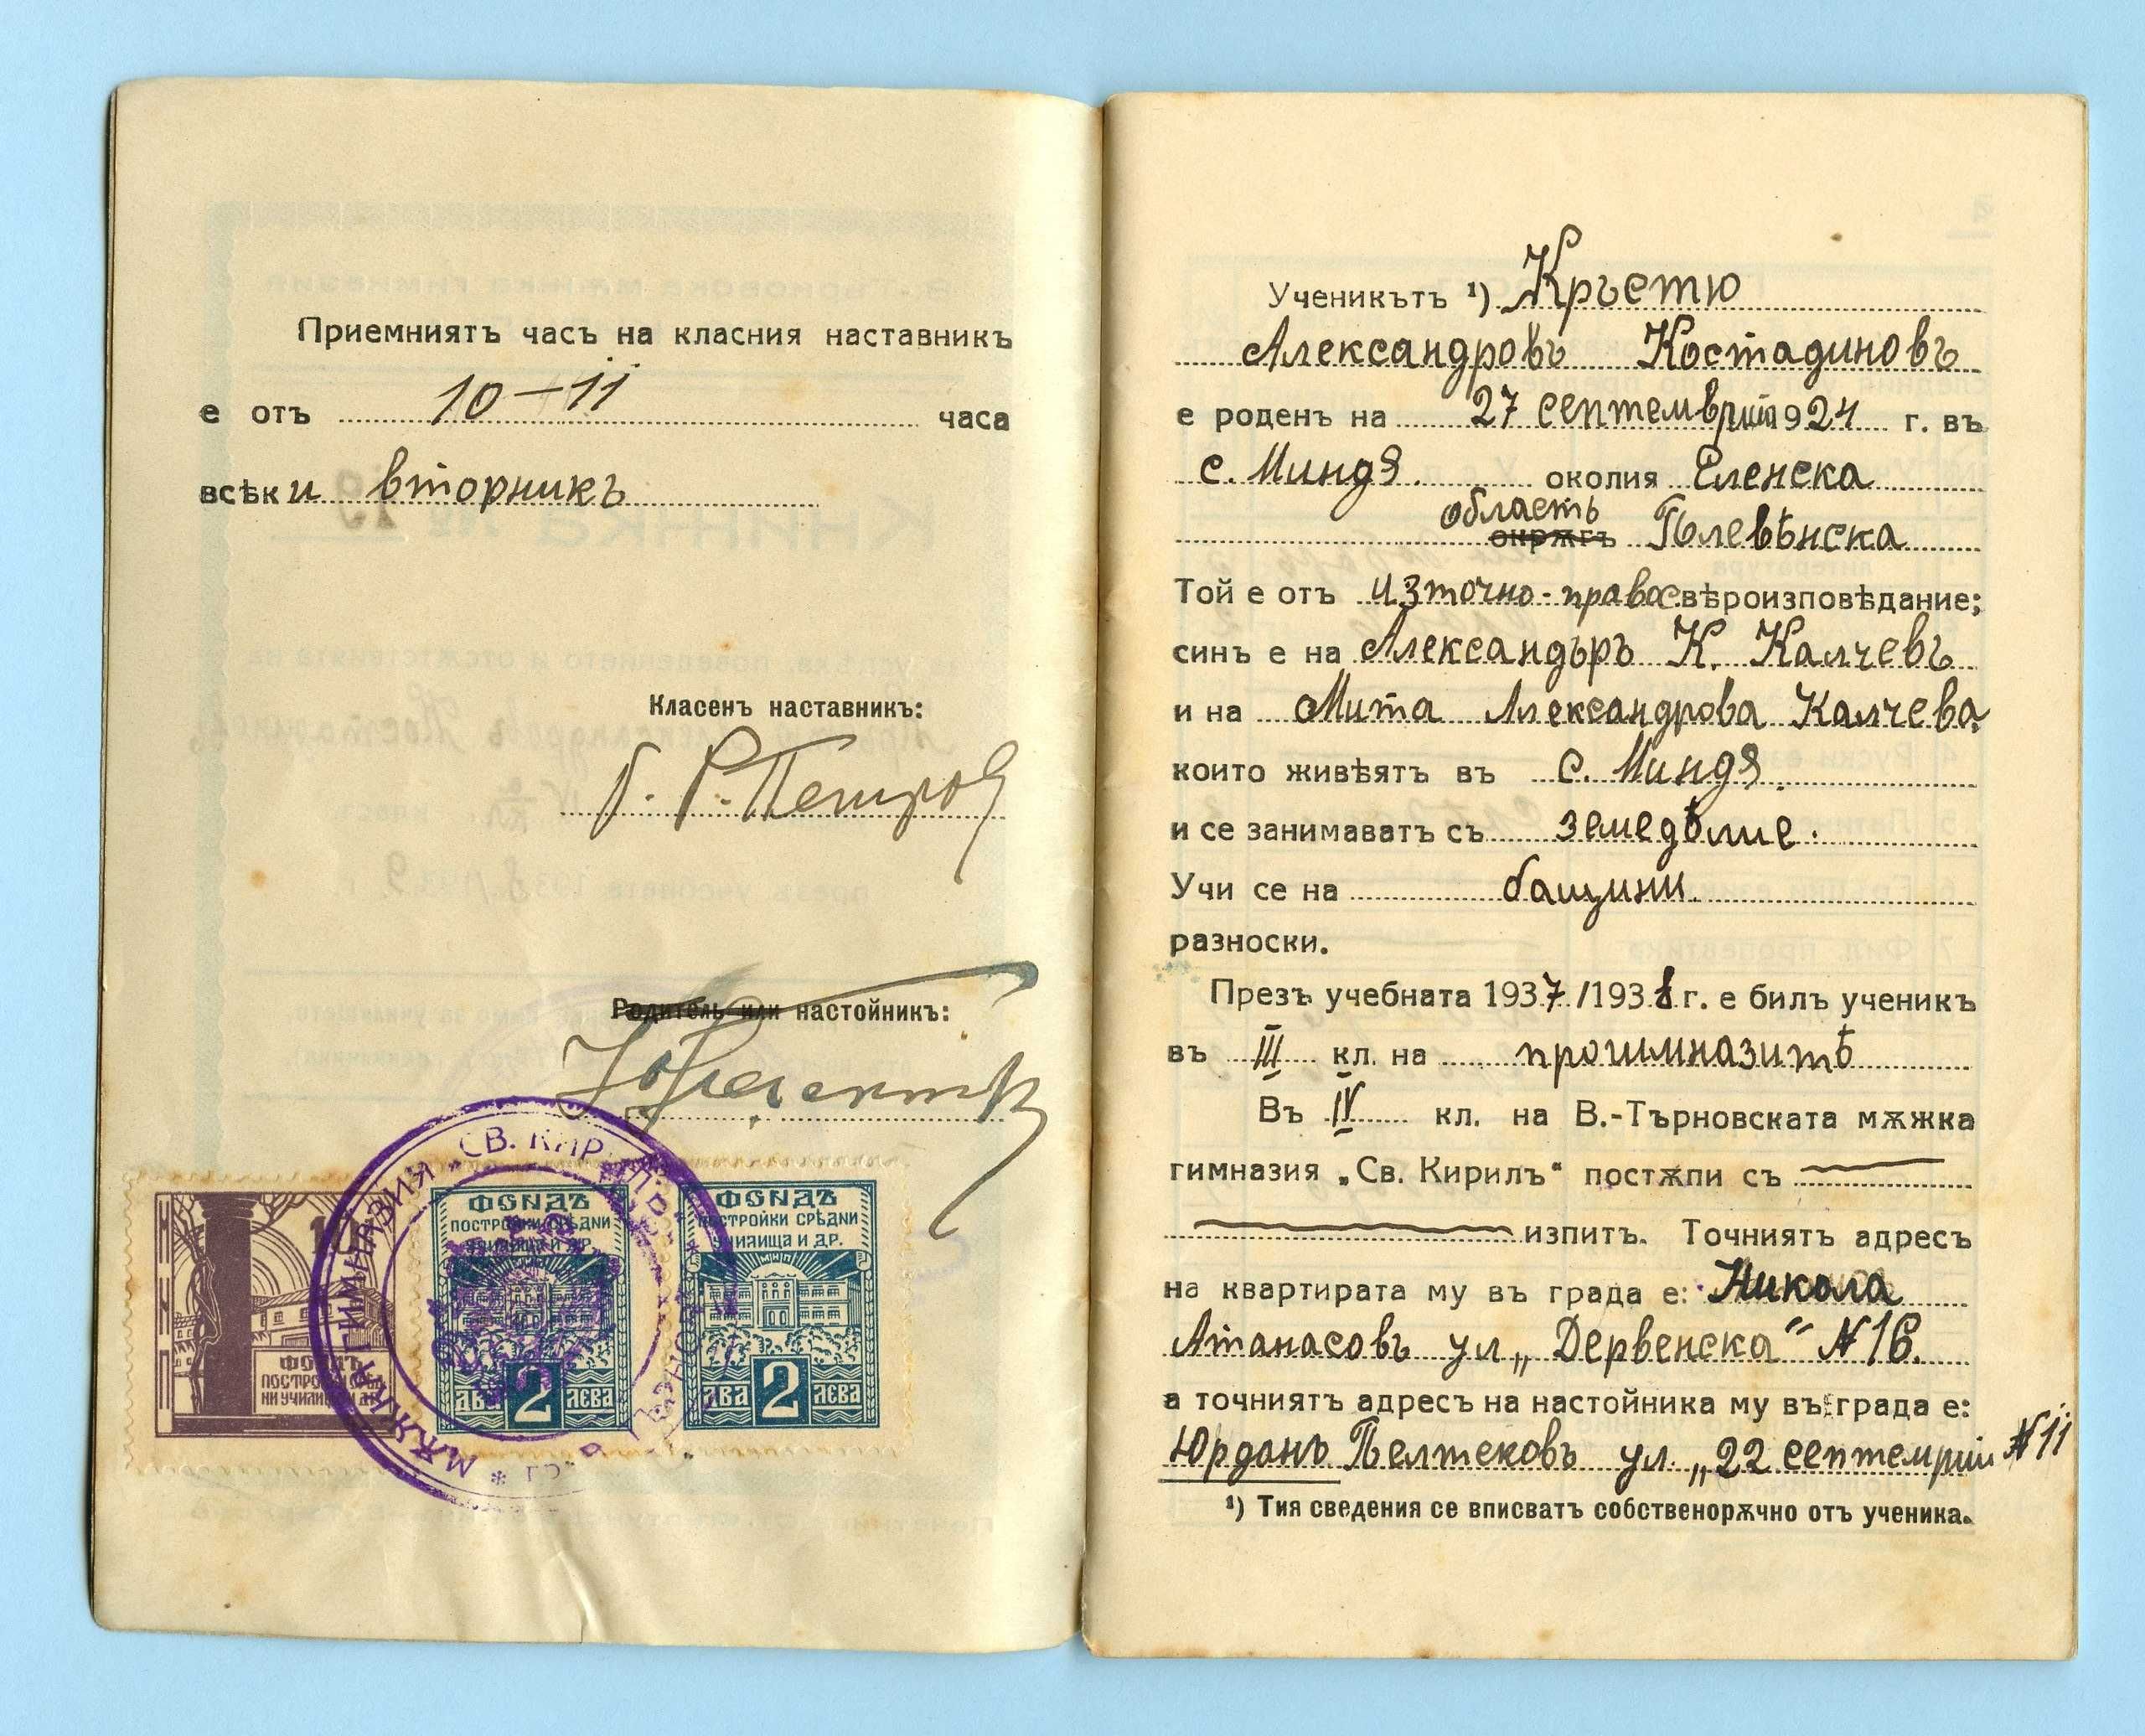 Приемниятъ часъ на класния наставникъ
е отъ 10 – 11 часа
всѣки вторникъ
Класенъ наставникъ:
Р. Петров
Родитель или настойникъ:
МѪЖКА ГИМНАЗИЯ „СВ. КИРИЛЪ“
15
ФОНДЪ
ПОСТРОЙКИ СРѢД
НИ УЧИЛИЩА И ДР.
ФОНДЪ
ПОСТРОЙКИ СРѢДНИ
УЧИЛИЩА И ДР.
ДВА 2 ЛЕВА
ФОНДЪ
ПОСТРОЙКИ СРѢДНИ
УЧИЛИЩА И ДР.
МНП
ДВА 2 ЛЕВА
Ученикътъ ¹) Кръстю
Александровъ Костадиновъ
е роденъ на 27 септемврий 1924 г. въ
с. Миндя околия Еленска
область
окрѫгъ Плевѣнска
Той е отъ източно-правос. вѣроизповѣдание;
синъ е на Александъръ К. Калчевъ
и на Мита Александрова Калчева,
които живѣятъ въ с. Миндя.
и се занимаватъ съ земедѣлие.
Учи се на бащини
разноски.
Презъ учебната 1937/1938 г. е билъ ученикъ
въ III кл. на прогимназитѣ
Въ IV кл. на В.-Търновската мѫжка
гимназия „Св. Кирилъ“ постѫпи съ
изпитъ. Точниятъ адресъ
на квартирата му въ града е: Никола
Атанасовъ ул „Дервенска“ № 16.
а точниятъ адресъ на настойника му въ града е:
Юрданъ Пелтековъ ул. „22 септемрий № 11
¹) Тия сведения се вписватъ собственорѫчно отъ ученика.